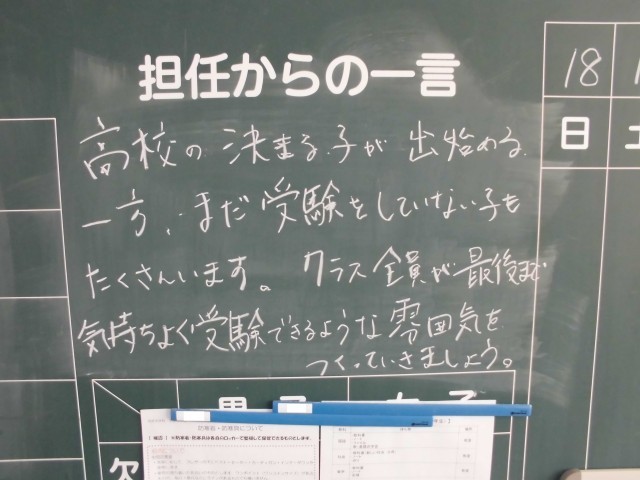 担任からの一言
高校の決まる子が出始める
一方、まだ受験をしていない子も
たくさんいます。クラス全員が最後まで
気持ちよく受験できるような雰囲気を
つくっていきましょう。
18
日
男子
女子
欠